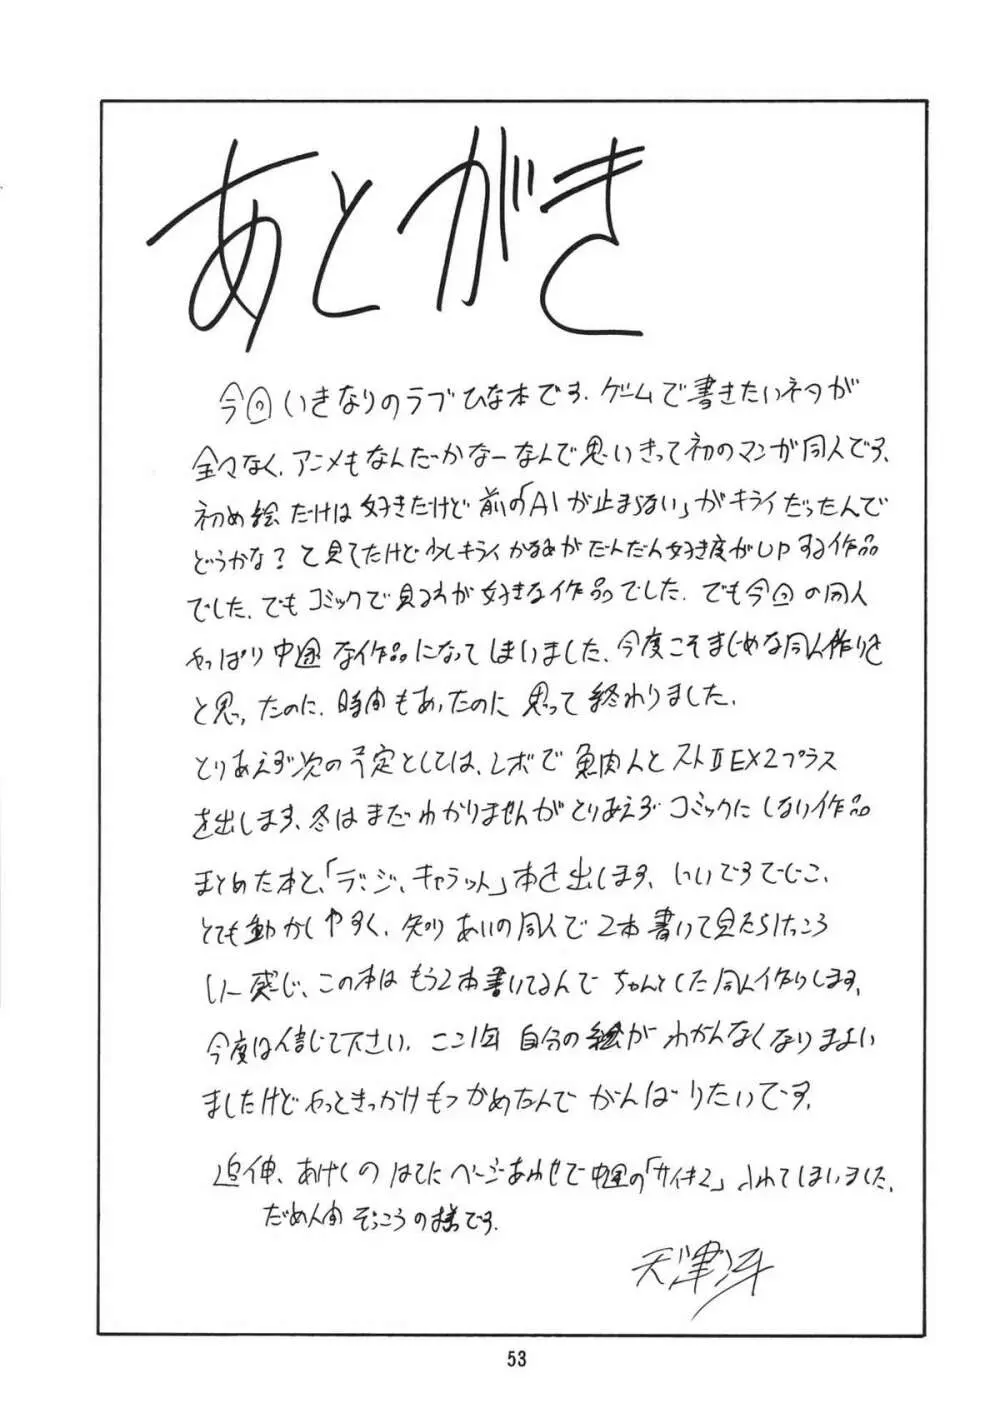 あとがき
今回いきなりのラブひな本です. ゲームで書きたいネタが
全々なく、アニメもなんだかなーなんで思いきって初のマンガ同人です、
初め絵だけは好きだけど前の「AIが止まらない」がキライだったんで
どうかな?と見てたけど少しキライかるあがだんだん好き度がUPする作品
でした、でもコミックで見るのが好きな作品でした. でも今回の同人
やっぱり中途な作品になってしまいました、今度こそまじめな同人作りを
と思ったのに、時間もあったのに思って終わりました.
とりあえず次の予定としては、レボで魚肉人とストⅡEX2プラス
を出します、冬はまだわかりませんがとりあえずコミックにしない作品
まとめた本と、「デ・ジ・キャラット」本を出します、いいですでじこ、
とても動かしやすく、知りあいの同人で2本書いて見たらけっこう
いー感じ、この本はもう2本書いてるんでちゃんとした同人作りします、
今度は信じて下さい. ここ1年自分の絵がわかんなくなりまよい
ましたけどやっときっかけもつかめたんでがんばりたいです.
追伸、あげくのはてにページあわせで中途の「サイキ2」入れてしまいました、
だめ人間そっこうの様です.
天津冴
53